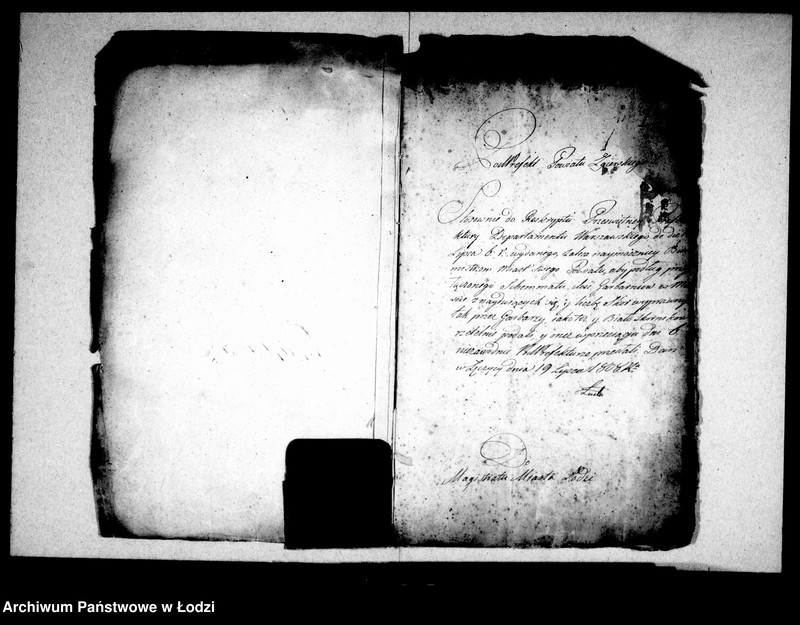 PodPrefekt Powiatu Zgierskiego
Stosownie do Reskryptu Prześwietney
ktury Departamentu Warszawskiego do dnia
Lipca b. r. wydanego, zaleca naymocniey
mistrzom Miast swego Powiatu, aby podług
łączonego Schemmatu, ilość Garbarniów w
ście znayduiących się, y liczbę Skór wyprawnych
tak przez Garbarzy, jako też y Biało Skorników
rzetelnie podali, y w przeciągu dni 6
niezawodnie PodPrefekturze przesłali. Dan
w Zgierzu dnia 19 Lipca 1808 R.
Do
Magistratu Miasta Łodzi
Archiwum Państwowe w Łodzi